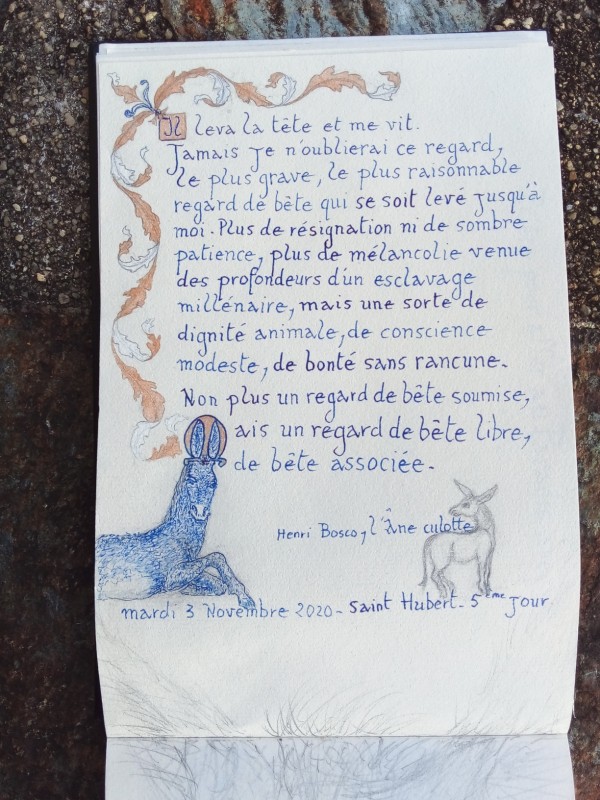 Il leva la tête et me vit.
Jamais je n'oublierai ce regard,
le plus grave, le plus raisonnable
regard de bête qui se soit levé jusqu'à
moi. Plus de résignation ni de sombre
patience, plus de mélancolie venue
des profondeurs d'un esclavage
millénaire, mais une sorte de
dignité animale, de conscience
modeste, de bonté sans rancune.
Non plus un regard de bête soumise,
mais un regard de bête libre,
de bête associée.
Henri Bosco, l'âne culotte
mardi 3 Novembre 2020 - Saint Hubert - 5ème jour